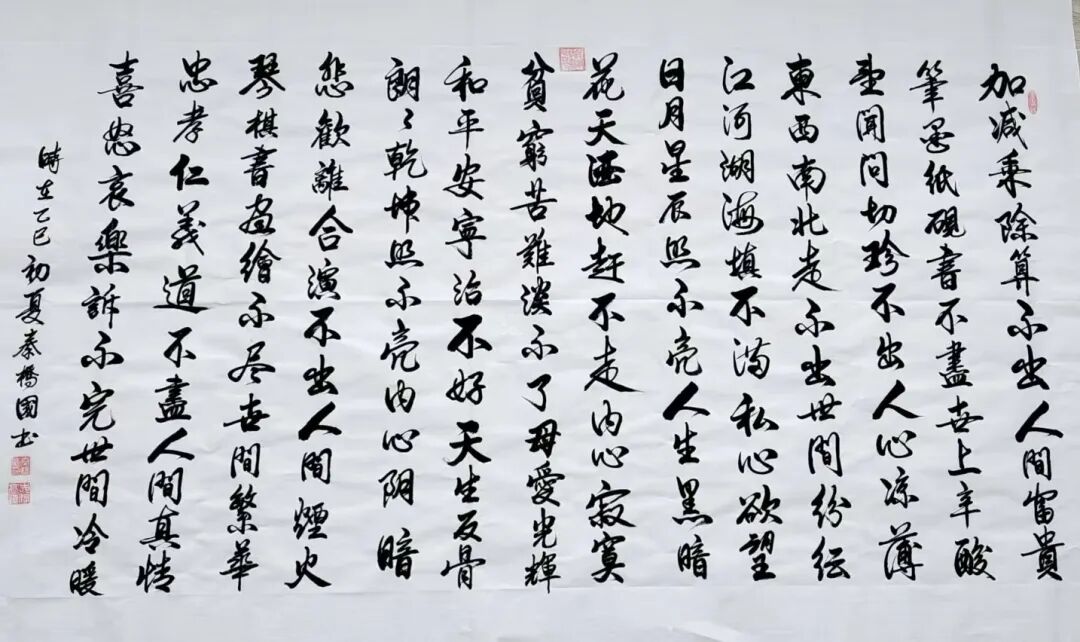 加减乘除算不出人間富貴
筆墨纸砚書不盡世上辛酸
望聞问切珍不出人心凉薄
東西南北走不出世間纷纭
江河湖海填不满私心欲望
日月星辰照不亮人生黑暗
花天酒地赶不走内心寂寞
貧窮苦難淡不了母愛光輝
和平安寧治不好天生反骨
朗々乾坤照不亮内心阴暗
悲歡離合演不出人間煙火
琴棋書画繪不尽世間繁華
忠孝仁義道不盡人間真情
喜怒哀樂訴不完世間冷暖
時在乙巳初夏秦橋国书